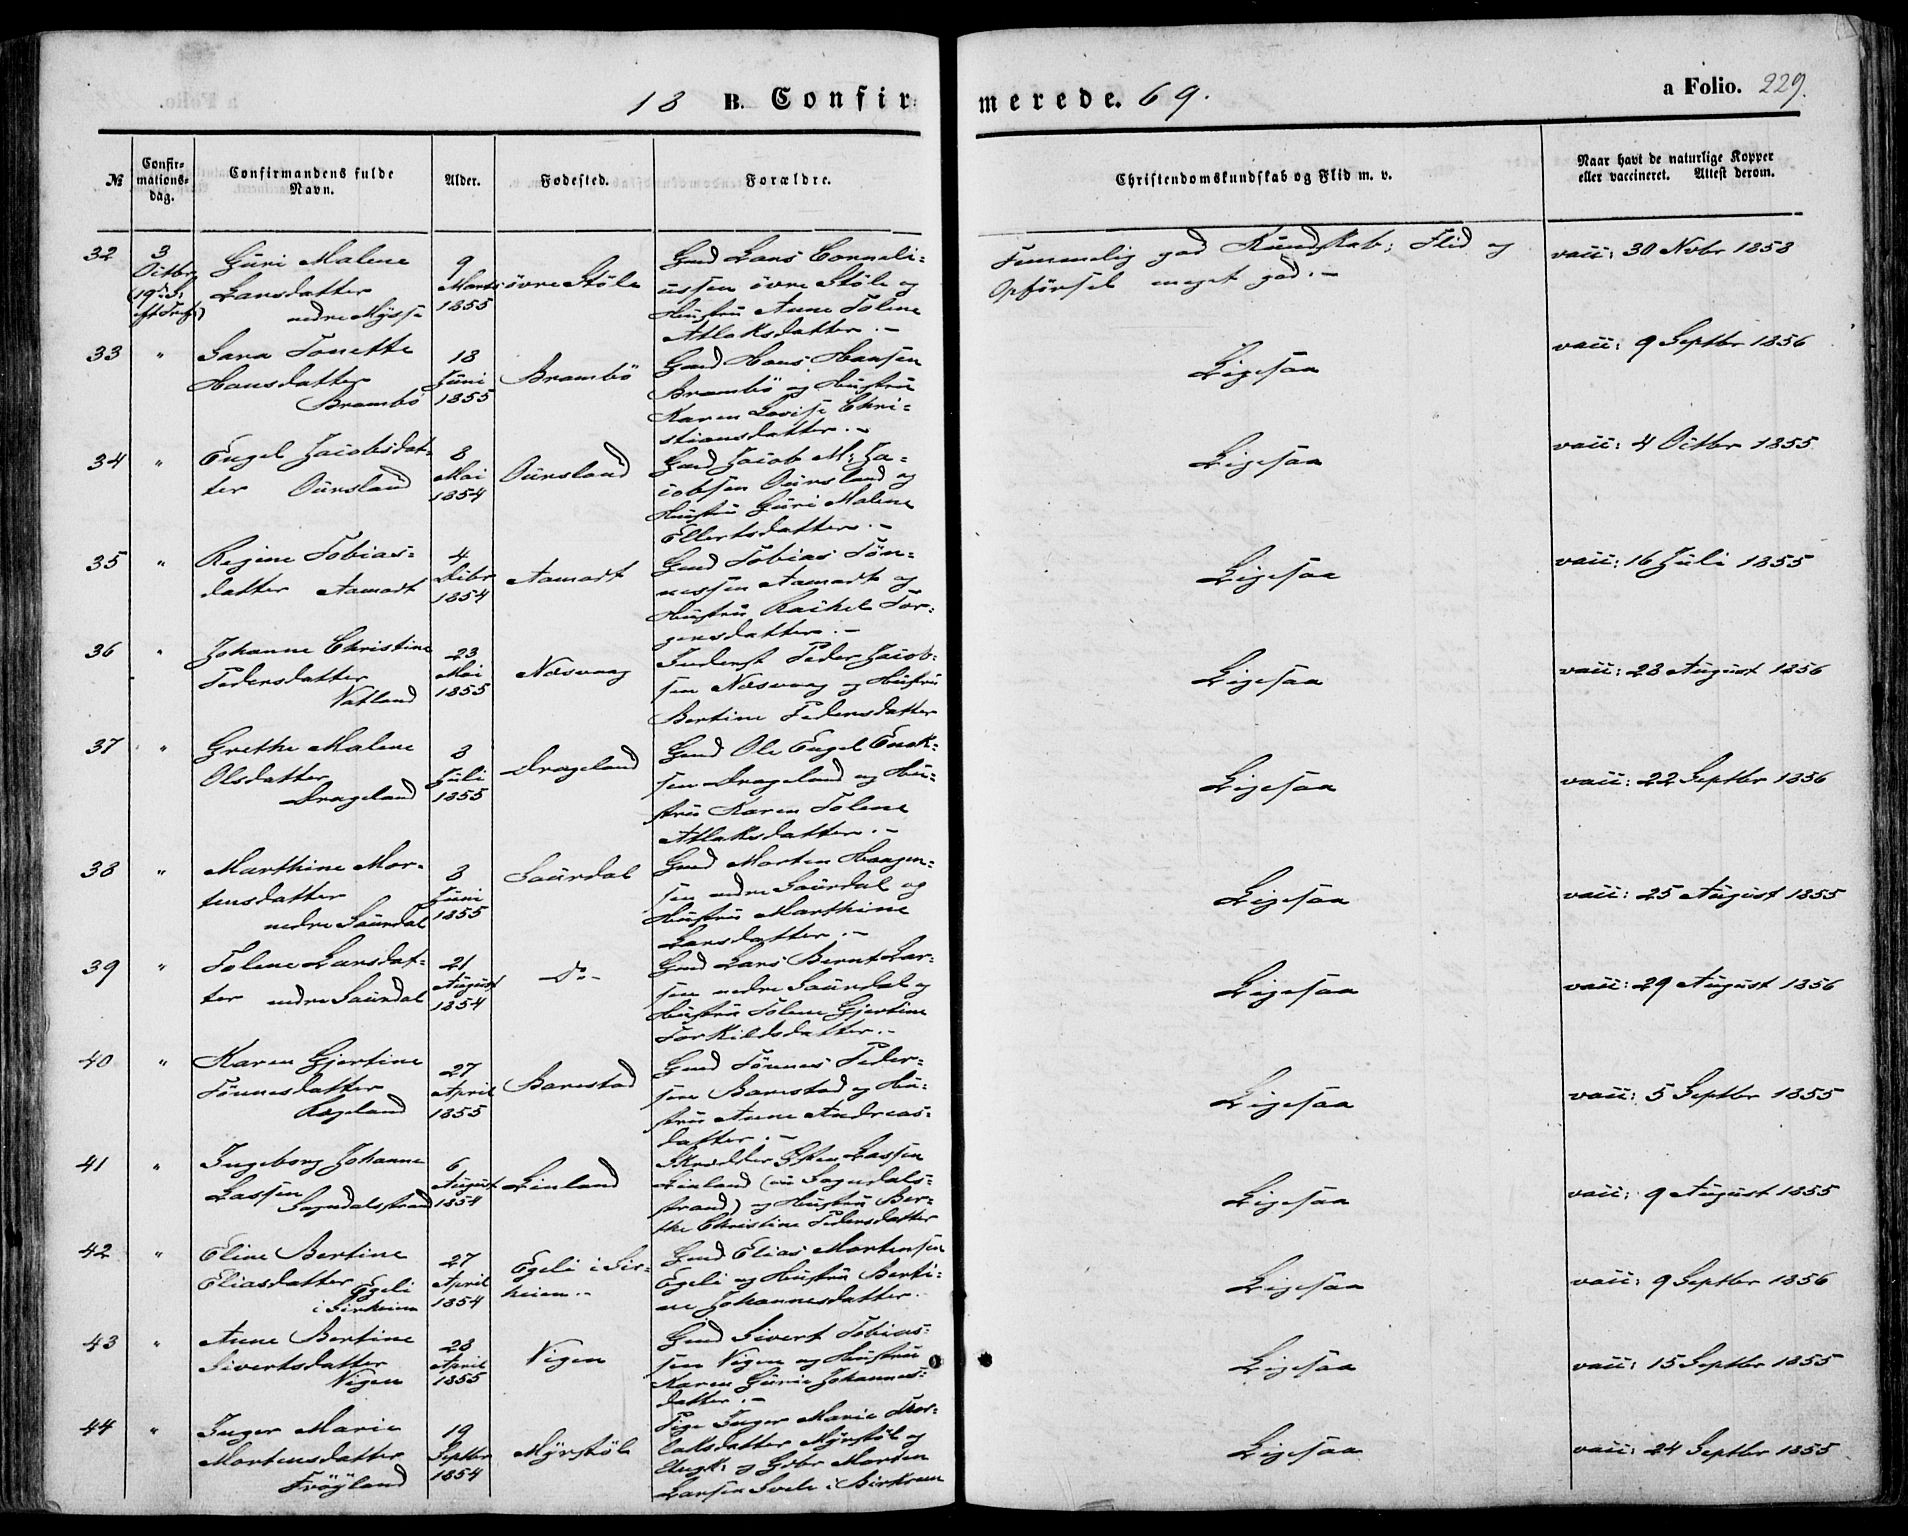 18 B. Confirmerede. 69. a Folio. 229.
№ Confirmations-dag. Confirmandens fulde Navn. Alder. Fødested. Forældre. Christendomskundskab og Flid m. v. Naar havt de naturlige Kopper eller vaccineret. Attest derom.
32 3 Octbr (19 d. S. eft. Tref.) Guri Malene Larsdatter nedre Mysse 9 Marts 1855 övre Støle Gmd Lars Corneliussen övre Støle og Hustru Anne Tolene Atlaksdatter.- Temmelig god Kundskab; Flid og Opførsel meget god.- vacc: 30 Novbr 1858
33 " Sara Tonette Hansdatter Brambö 18 Juni 1855 Brambö Gmd Hans Hansen Brambö og Hustru Karen Lovise Christiansdatter.- Ligesaa vacc: 9 Septbr 1856
34 " Engel Jacobsdatter Oursland 8 Mai 1854 Oursland Gmd Jacob M: Jacobsen Oursland og Hustru Guri Malene Ellertsdatter.- Ligesaa vacc: 4 Octbr 1855
35 " Regine Tobiasdatter Aamodt 4 Decbr 1854 Aamodt Gmd Tobias Tønnessen Aamodt og Hustru Rachel Torgersdatter.- Ligesaa vacc: 16 Juli 1855
36 " Johanne Christine Pedersdatter Vatland 23 Mai 1855 Næsvaag Inderst Peder Jacobsen Næsvaag og Hustru Bertine Pedersdatter Ligesaa vacc: 28 August 1856
37 " Grethe Malene Olsdatter Drageland 8 Juli 1855 Drageland Gmd Ole Engel Enoksen Drageland og Hustru Karen Tolene Atlaksdatter.- Ligesaa vacc: 22 Septbr 1856
38 " Marthine Mortensdatter nedre Saurdal 8 Juni 1855 Saurdal Gmd Morten Haagensen nedre Saurdal og Hustru Marthine Larsdatter.- Ligesaa vacc: 25 August 1855
39 " Tolene Larsdatter nedre Saurdal 21 August 1854 Do- Gmd Lars Bernt Larsen nedre Saurdal og Hustru Tolene Gjertine Torkildsdatter.- Ligesaa vacc: 29 August 1856
40 " Karen Gjertine Tönnesdatter Rægeland 27 April 1855 Barstad Gmd Tönnes Pedersen Barstad og Hustru Anne Andreasdatter.- Ligesaa vacc: 5 Septbr 1855
41 " Ingeborg Johanne Lassen Sogndalstrand 6 August 1854 Linland Skrædder Lassen Linland (nu Sogndalsstrand) og Hustru Berthe Christine Pedersdatter Ligesaa vacc: 9 August 1855
42 " Eline Bertine Eliasdatter Egeli i Sirheien 27 April 1854 Egeli i Sirheien.- Gmd Elias Mortensen Egeli og Hustru Bertine Johannesdatter.- Ligesaa vacc: 9 Septbr 1856
43 " Anne Bertine Sivertsdatter Nigen 28 April 1855 Nigen Gmd Sivert Tobiassen Nigen og Hustru Karen Gurie Johannesdatter.- Ligesaa vacc: 15 Septbr 1855
44 " Inger Marie Mortensdatter Fröyland 19 Septbr 1854 Myrstöl Pige Inger Marie Thorlaksdatter Myrstöl og Ungk: og Gdbr Morten Larsen Svele i Birkrem Ligesaa vacc: 24 Septbr 1855